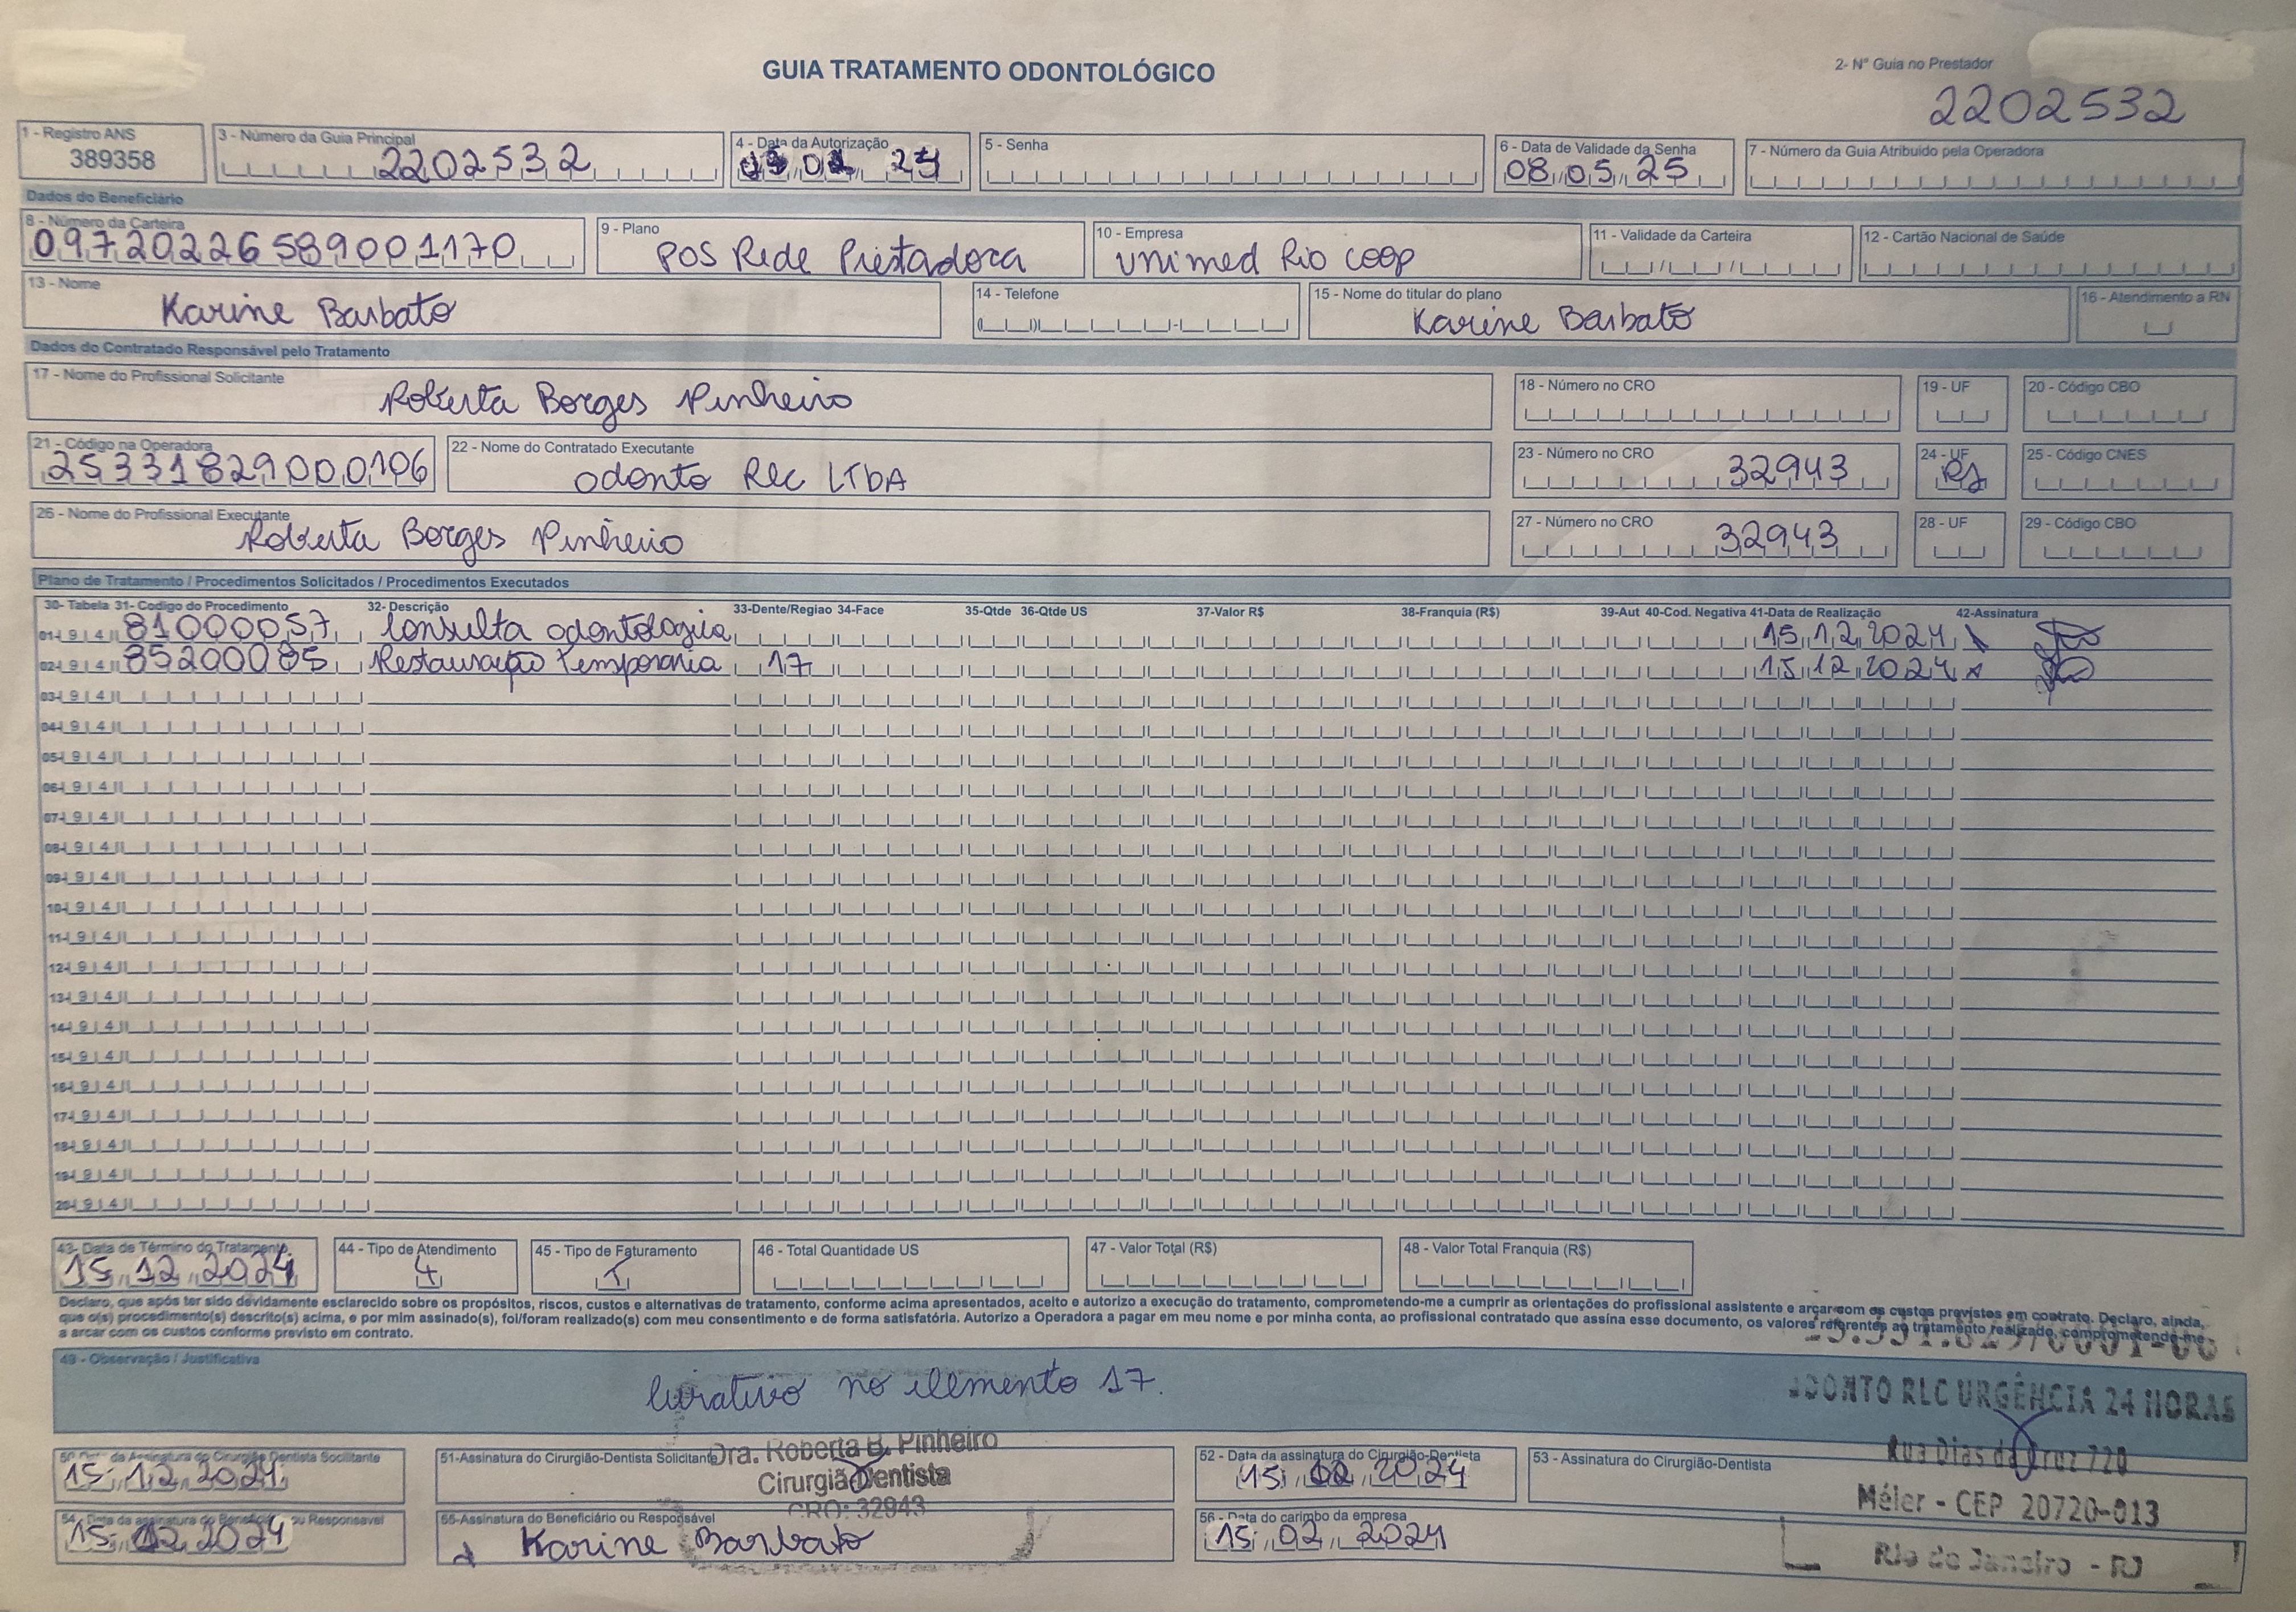 GUIA TRATAMENTO ODONTOLÓGICO
2- N° Guia no Prestador
2202532
1 - Registro ANS
389358
3 - Número da Guia Principal
2202532
4 - Data da Autorização
5 - Senha
6 - Data de Validade da Senha
08 05 25
7 - Número da Guia Atribuido pela Operadora
Dados do Beneficiário
8 - Número da Carteira
09720226589001170
9 - Plano
POS Rede Prestadora
10 - Empresa
Unimed Rio coop
11 - Validade da Carteira
12 - Cartão Nacional de Saúde
13 - Nome
Karine Barbato
14 - Telefone
15 - Nome do titular do plano
Karine Barbato
16 - Atendimento a RN
Dados do Contratado Responsável pelo Tratamento
17 - Nome do Profissional Solicitante
Roberta Borges Pinheiro
18 - Número no CRO
19 - UF
20 - Código CBO
21 - Código na Operadora
25331829000106
22 - Nome do Contratado Executante
Odonto RLC LTDA
23 - Número no CRO
32943
24 - UF
RJ
25 - Código CNES
26 - Nome do Profissional Executante
Roberta Borges Pinheiro
27 - Número no CRO
32943
28 - UF
29 - Código CBO
Plano de Tratamento / Procedimentos Solicitados / Procedimentos Executados
30- Tabela 31- Codigo do Procedimento 32- Descrição 33-Dente/Regiao 34-Face 35-Qtde 36-Qtde US 37-Valor R$ 38-Franquia (R$) 39-Aut 40-Cod. Negativa 41-Data de Realização 42-Assinatura
01- 9 4 81000057 Consulta odontologica 15 12 2024
02- 9 4 85200085 Restauração temporaria 17 15 12 2024
03- 9 4
04- 9 4
05- 9 4
06- 9 4
07- 9 4
08- 9 4
09- 9 4
10- 9 4
11- 9 4
12- 9 4
13- 9 4
14- 9 4
15- 9 4
16- 9 4
17- 9 4
18- 9 4
19- 9 4
20- 9 4
43- Data de Término do Tratamento
15 12 2024
44 - Tipo de Atendimento
4
45 - Tipo de Faturamento
46 - Total Quantidade US
47 - Valor Total (R$)
48 - Valor Total Franquia (R$)
Declaro, que após ter sido devidamente esclarecido sobre os propósitos, riscos, custos e alternativas de tratamento, conforme acima apresentados, aceito e autorizo a execução do tratamento, comprometendo-me a cumprir as orientações do profissional assistente e arcar com os custos previstos em contrato. Declaro, ainda,
que o(s) procedimento(s) descrito(s) acima, e por mim assinado(s), foi/foram realizado(s) com meu consentimento e de forma satisfatória. Autorizo a Operadora a pagar em meu nome e por minha conta, ao profissional contratado que assina esse documento, os valores referentes ao tratamento realizado, comprometendo-me
a arcar com os custos conforme previsto em contrato.
49 - Observação / Justificativa
Curativo no elemento 17.
ODONTO RLC URGÊNCIA 24 HORAS
Rua Dias da Cruz 720
Méier - CEP 20720-013
Rio de Janeiro - RJ
50- Data da Assinatura do Cirurgião Dentista Solicitante
15 12 2024
51-Assinatura do Cirurgião-Dentista Solicitante
Dra. Roberta B. Pinheiro
Cirurgiã Dentista
CRO: 32943
52 - Data da assinatura do Cirurgião-Dentista
15 2024
53 - Assinatura do Cirurgião-Dentista
54- Data da assinatura do Beneficiário ou Responsavel
15 2024
55-Assinatura do Beneficiário ou Responsável
Karine Barbato
56 - Data do carimbo da empresa
15 02 2024